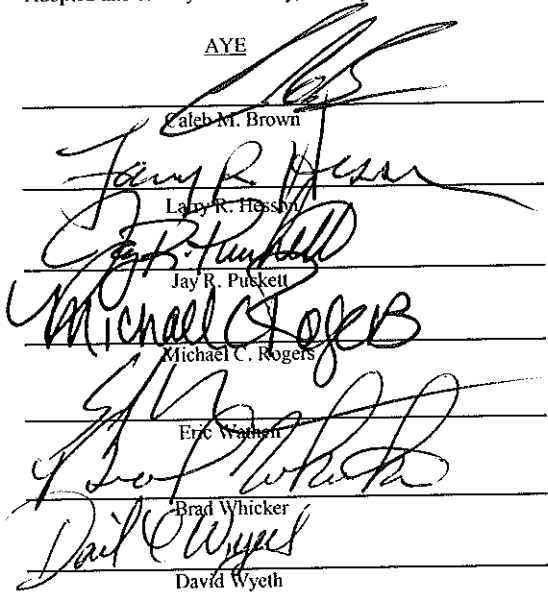 AYE
Caleb M. Brown
Larry R. Hesson
Larry R. Hesson
Jay R. Puckett
Jay R. Puckett
Michael C Rogers
Michael C. Rogers
Eric Wathen
Brad Whicker
David Wyeth